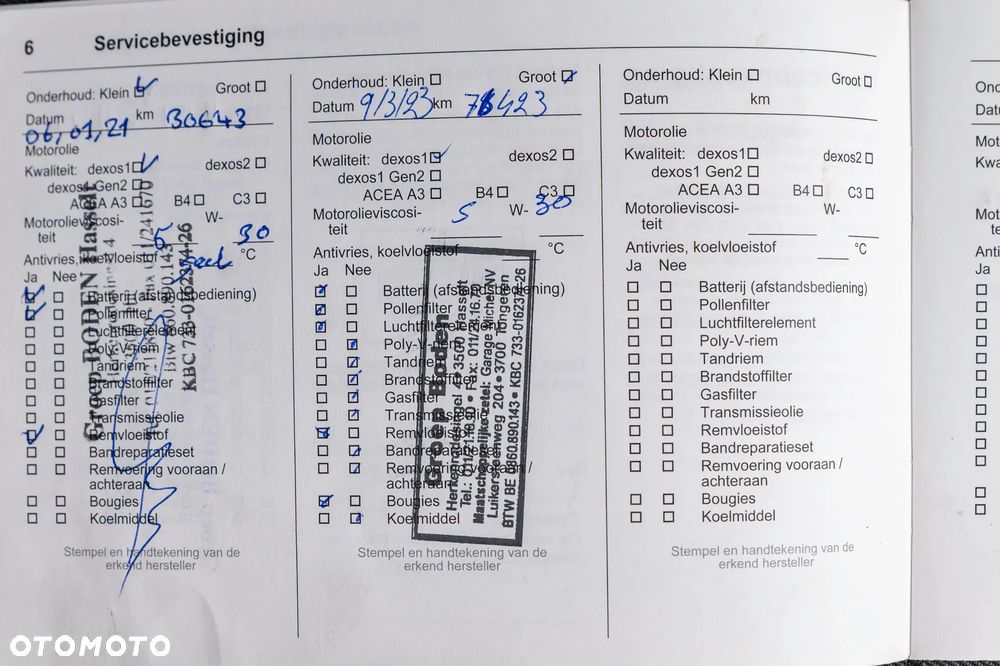 6 Servicebevestiging
Onderhoud: Klein Groot
Datum km
06,01,21 30643
Motorolie
Kwaliteit: dexos1 dexos2
dexos1 Gen2
ACEA A3 B4 C3
Motorolieviscosi- W-
teit 5 30
Antivries, koelvloeistof °C
Ja Nee
Batterij (afstandsbediening)
Pollenfilter
Luchtfilterelement
Poly-V-riem
Tandriem
Brandstoffilter
Gasfilter
Transmissieolie
Remvloeistof
Bandreparatieset
Remvoering vooraan /
achteraan
Bougies
Koelmiddel
Stempel en handtekening van de
erkend hersteller
Groep BODEN Hasselt
KBC 733-0162374-26
Onderhoud: Klein Groot
Datum 9/3/23 km 76423
Motorolie
Kwaliteit: dexos1 dexos2
dexos1 Gen2
ACEA A3 B4 C3
Motorolieviscosi- 5 W- 30
teit
Antivries, koelvloeistof °C
Ja Nee
Batterij (afstandsbediening)
Pollenfilter
Luchtfilterelement
Poly-V-riem
Tandriem
Brandstoffilter
Gasfilter
Transmissieolie
Remvloeistof
Bandreparatieset
Remvoering vooraan /
achteraan
Bougies
Koelmiddel
Stempel en handtekening van de
erkend hersteller
Groep Boden
Herkenrodesingel 4 • 3500 Hasselt
Tel.: 011/21.18.90 • Fax: 011/24.16.70
Maatschappelijke zetel: Garage Micher NV
Luikersteenweg 204 • 3700 Tongeren
BTW BE 0860.890.143 • KBC 733-0162374-26
Onderhoud: Klein Groot
Datum km
Motorolie
Kwaliteit: dexos1 dexos2
dexos1 Gen2
ACEA A3 B4 C3
Motorolieviscosi- W-
teit
Antivries, koelvloeistof °C
Ja Nee
Batterij (afstandsbediening)
Pollenfilter
Luchtfilterelement
Poly-V-riem
Tandriem
Brandstoffilter
Gasfilter
Transmissieolie
Remvloeistof
Bandreparatieset
Remvoering vooraan /
achteraan
Bougies
Koelmiddel
Stempel en handtekening van de
erkend hersteller
OTOMOTO